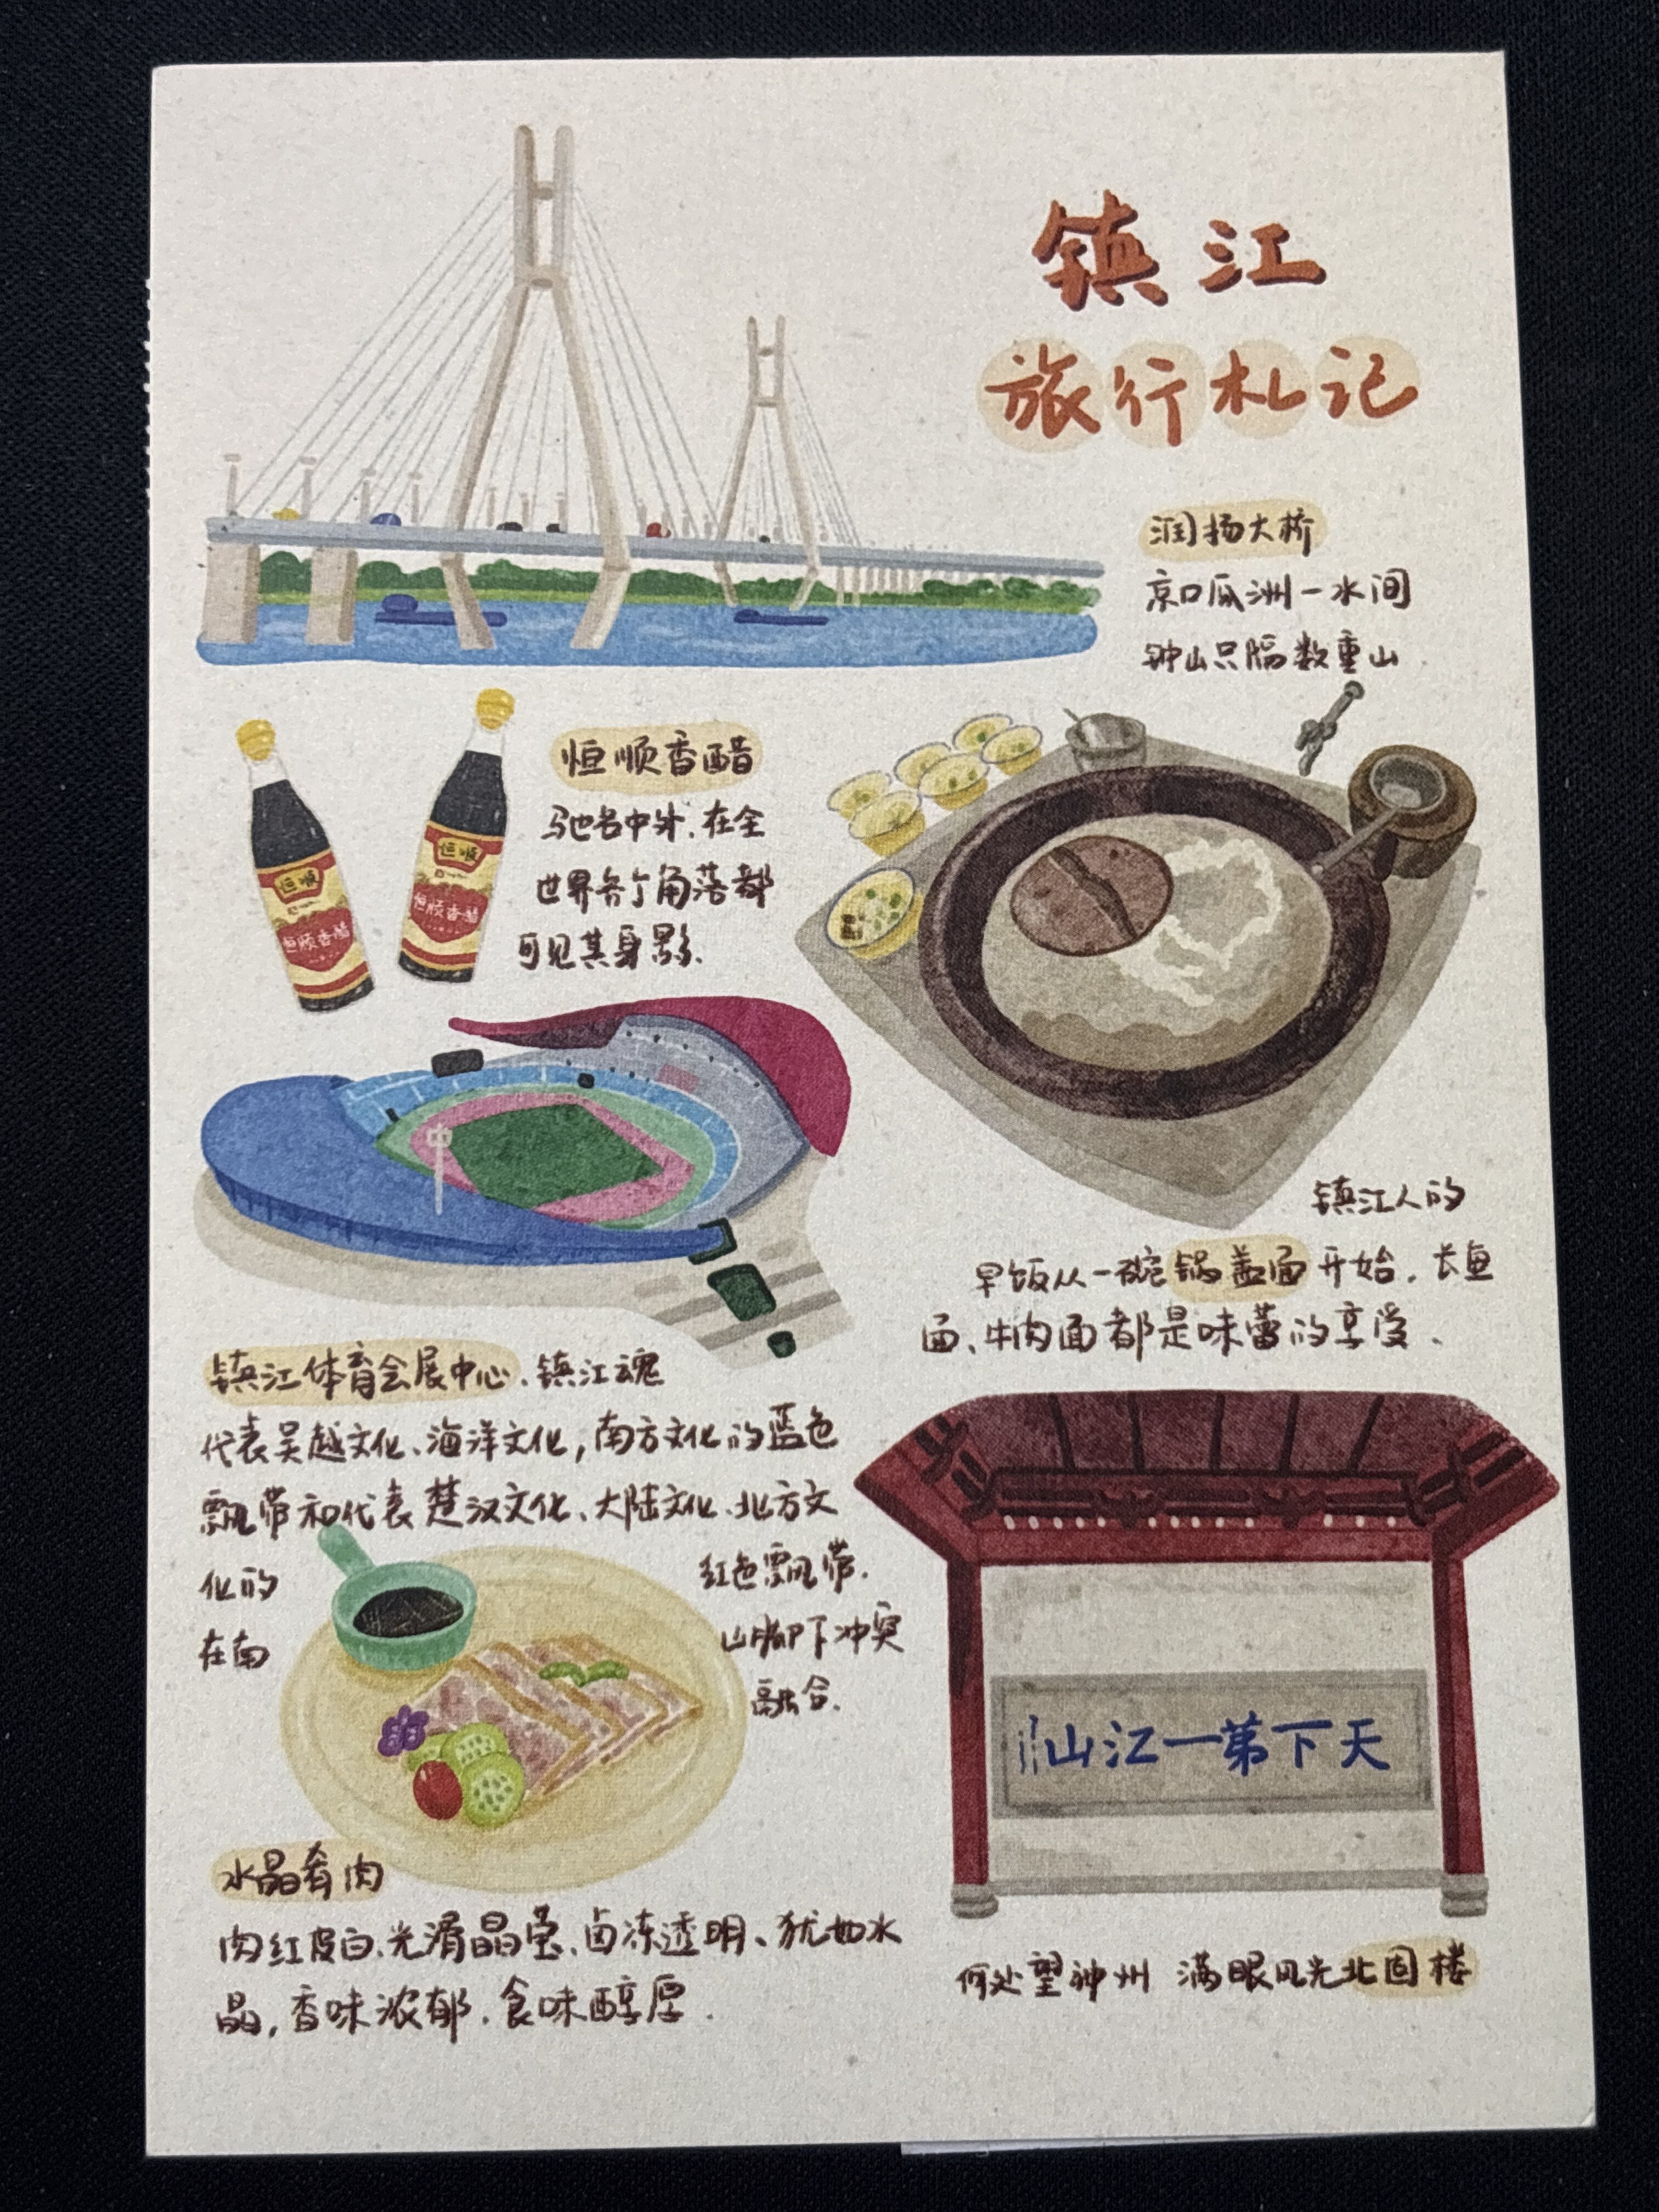 镇江
旅行札记
润扬大桥
京口瓜洲一水间
钟山只隔数重山
恒顺香醋
驰名中外.在全
世界各个角落都
可见其身影.
恒顺
恒顺香醋
恒顺
恒顺香醋
镇江人的
早饭从一碗锅盖面开始.长鱼
面、牛肉面都是味蕾的享受.
镇江体育会展中心.镇江魂
代表吴越文化、海洋文化,南方文化的蓝色
飘带和代表楚汉文化、大陆文化、北方文
化的红色飘带.
在南山脚下冲突
融合.
水晶肴肉
肉红皮白、光滑晶莹、卤冻透明、犹如水
晶,香味浓郁.食味醇厚.
天下第一江山
何处望神州 满眼风光北固楼